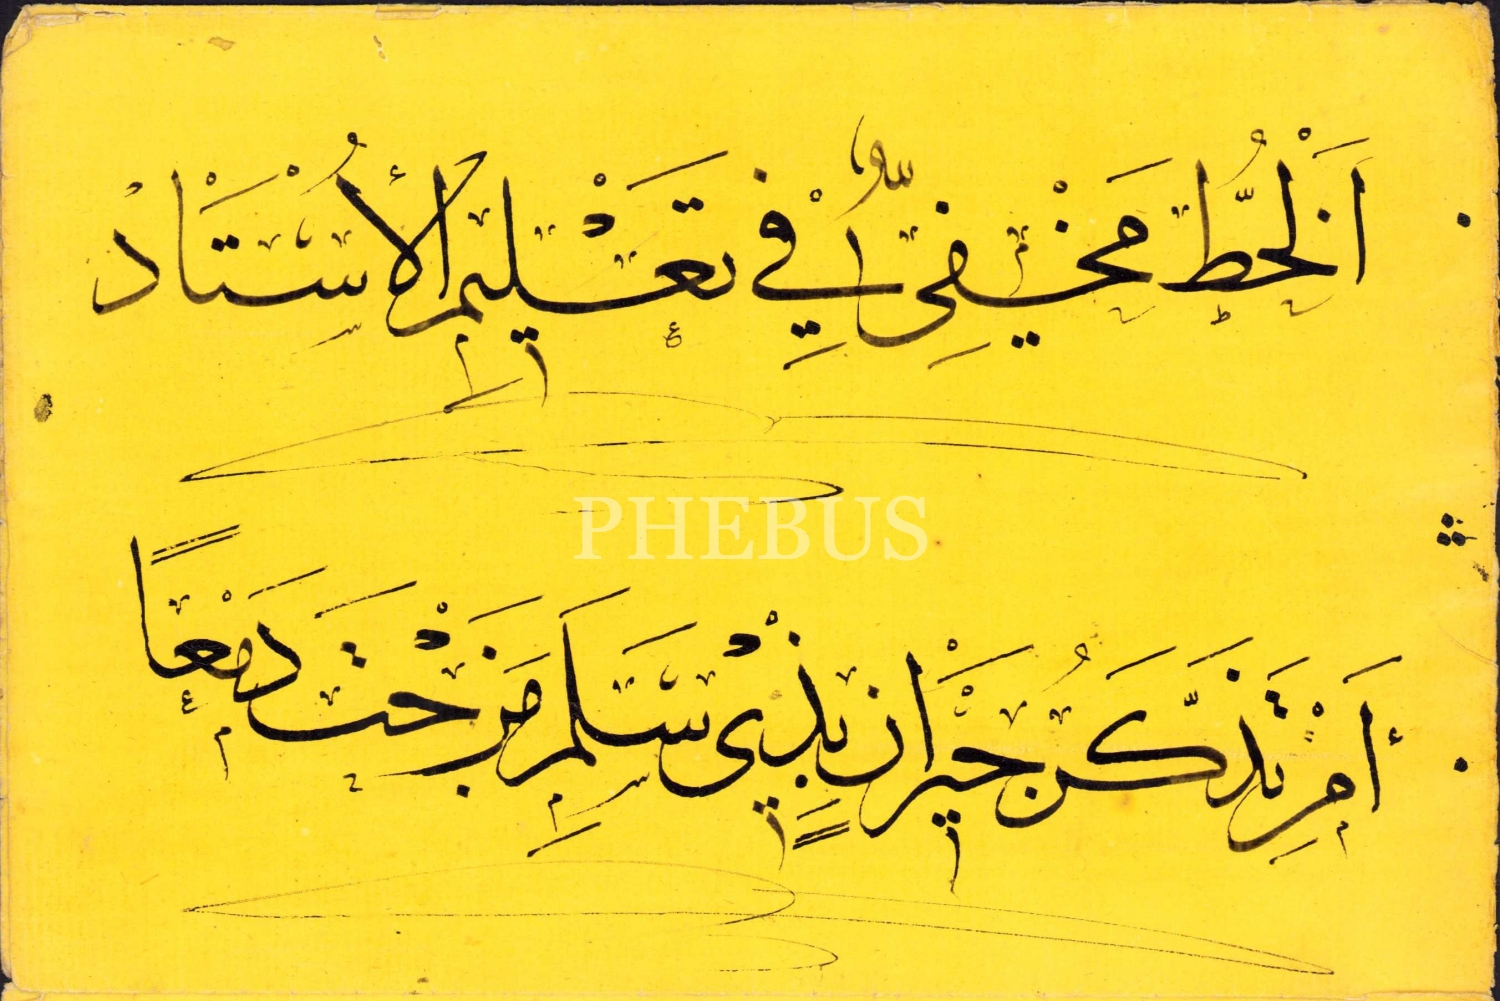 اَلْخَطُّ مَخْفِيٌّ فِي تَعْلِيمِ الْأُسْتَادْ
PHEBUS
أَمِنْ تَذَكُّرِ جِيْرَانٍ بِذِيْ سَلَمِ مَزَجْتَ دَمْعًا